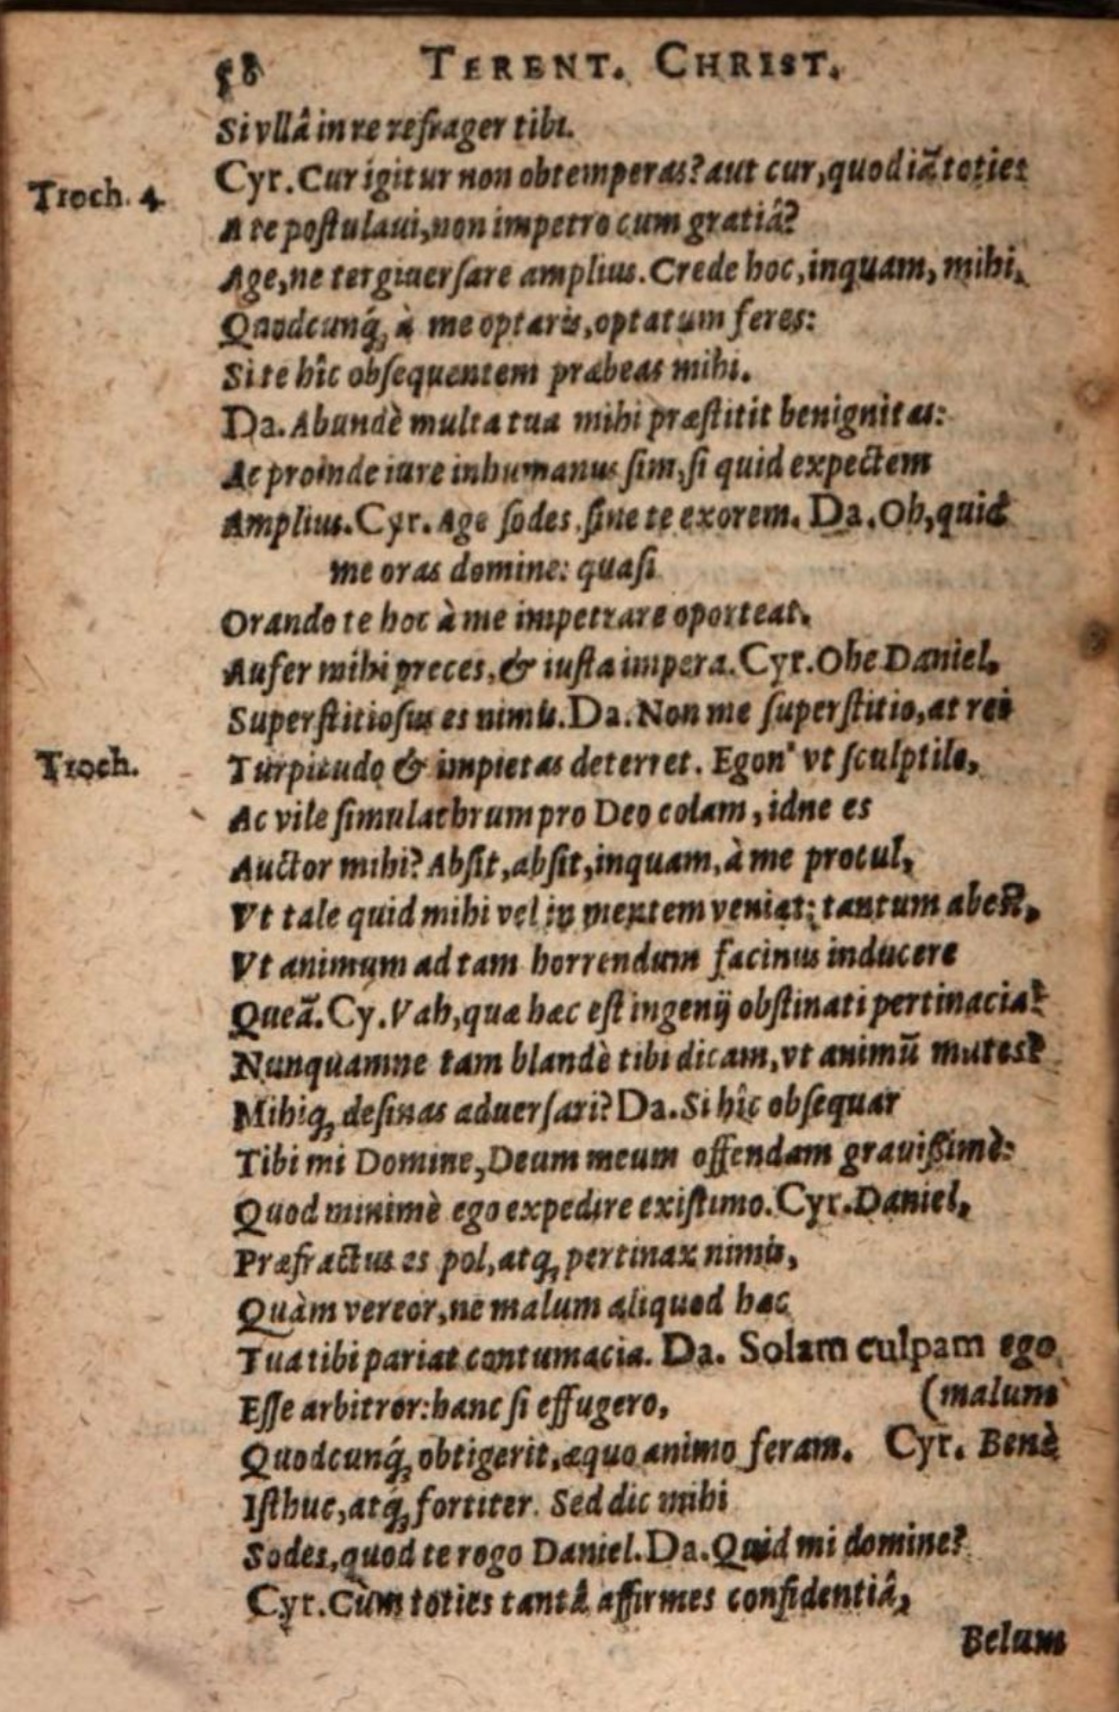 58 TERENT. CHRIST.
Si vllâ in re refrager tibi.
Troch. 4. Cyr. Cur igitur non obtemperas? aut cur, quod iã toties
A te postulaui, non impetro cum gratiâ?
Age, ne tergiuersare amplius. Crede hoc, inquam, mihi,
Quodcunq́, à me optaris, optatum feres:
Si te hîc obsequentem præbeas mihi.
Da. Abundè multa tua mihi præstitit benignitas:
Ac proinde iure inhumanus sim, si quid expectem
Amplius. Cyr. Age sodes sine te exorem. Da. Oh, quid
me oras domine: quasi
Orando te hoc à me impetrare oporteat.
Aufer mihi preces, & iusta impera. Cyr. Ohe Daniel,
Superstitiosus es nimis. Da. Non me superstitio, at rei
Troch. Turpitudo & impietas deterret. Egon' vt sculptile,
Ac vile simulachrum pro Deo colam, idne es
Auctor mihi? Absit, absit, inquam, à me procul,
Vt tale quid mihi vel in mentem veniat: tantum abest,
Vt animum ad tam horrendum facinus inducere
Queã. Cy. Vah, quæ hæc est ingenij obstinati pertinacia?
Nunquamne tam blandè tibi dicam, vt animũ mutes?
Mihiq, desinas aduersari? Da. Si hîc obsequar
Tibi mi Domine, Deum meum offendam grauissimè:
Quod minimè ego expedire existimo. Cyr. Daniel,
Præfractus es pol, atq, pertinax nimis,
Quàm vereor, ne malum aliquod hæc
Tua tibi pariat contumacia. Da. Solam culpam ego
Esse arbitror: hanc si effugero, (malum
Quodcunq́, obtigerit, æquo animo feram. Cyr. Benè
Isthuc, atq́, fortiter. Sed dic mihi
Sodes, quod te rogo Daniel. Da. Quid mi domine?
Cyr. Cùm toties tantâ affirmes confidentiâ,
Belum